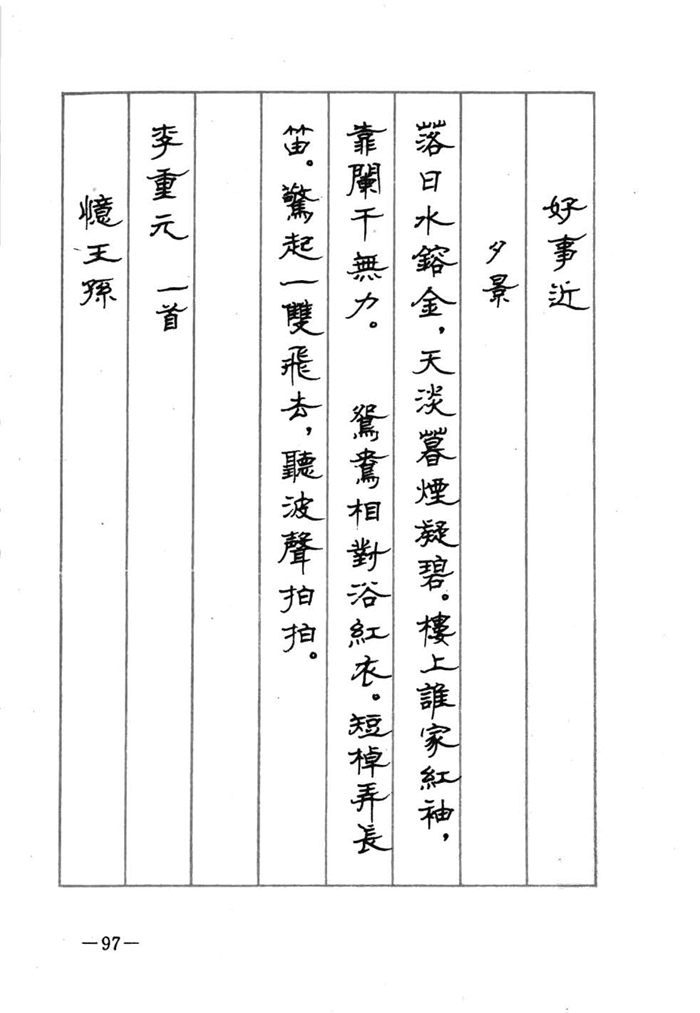 好事近
夕景
落日水鎔金，天淡暮煙凝碧。樓上誰家紅袖，
靠闌干無力。　鴛鴦相對浴紅衣。短棹弄長
笛。驚起一雙飛去，聽波聲拍拍。
李重元　一首
憶王孫
—97—